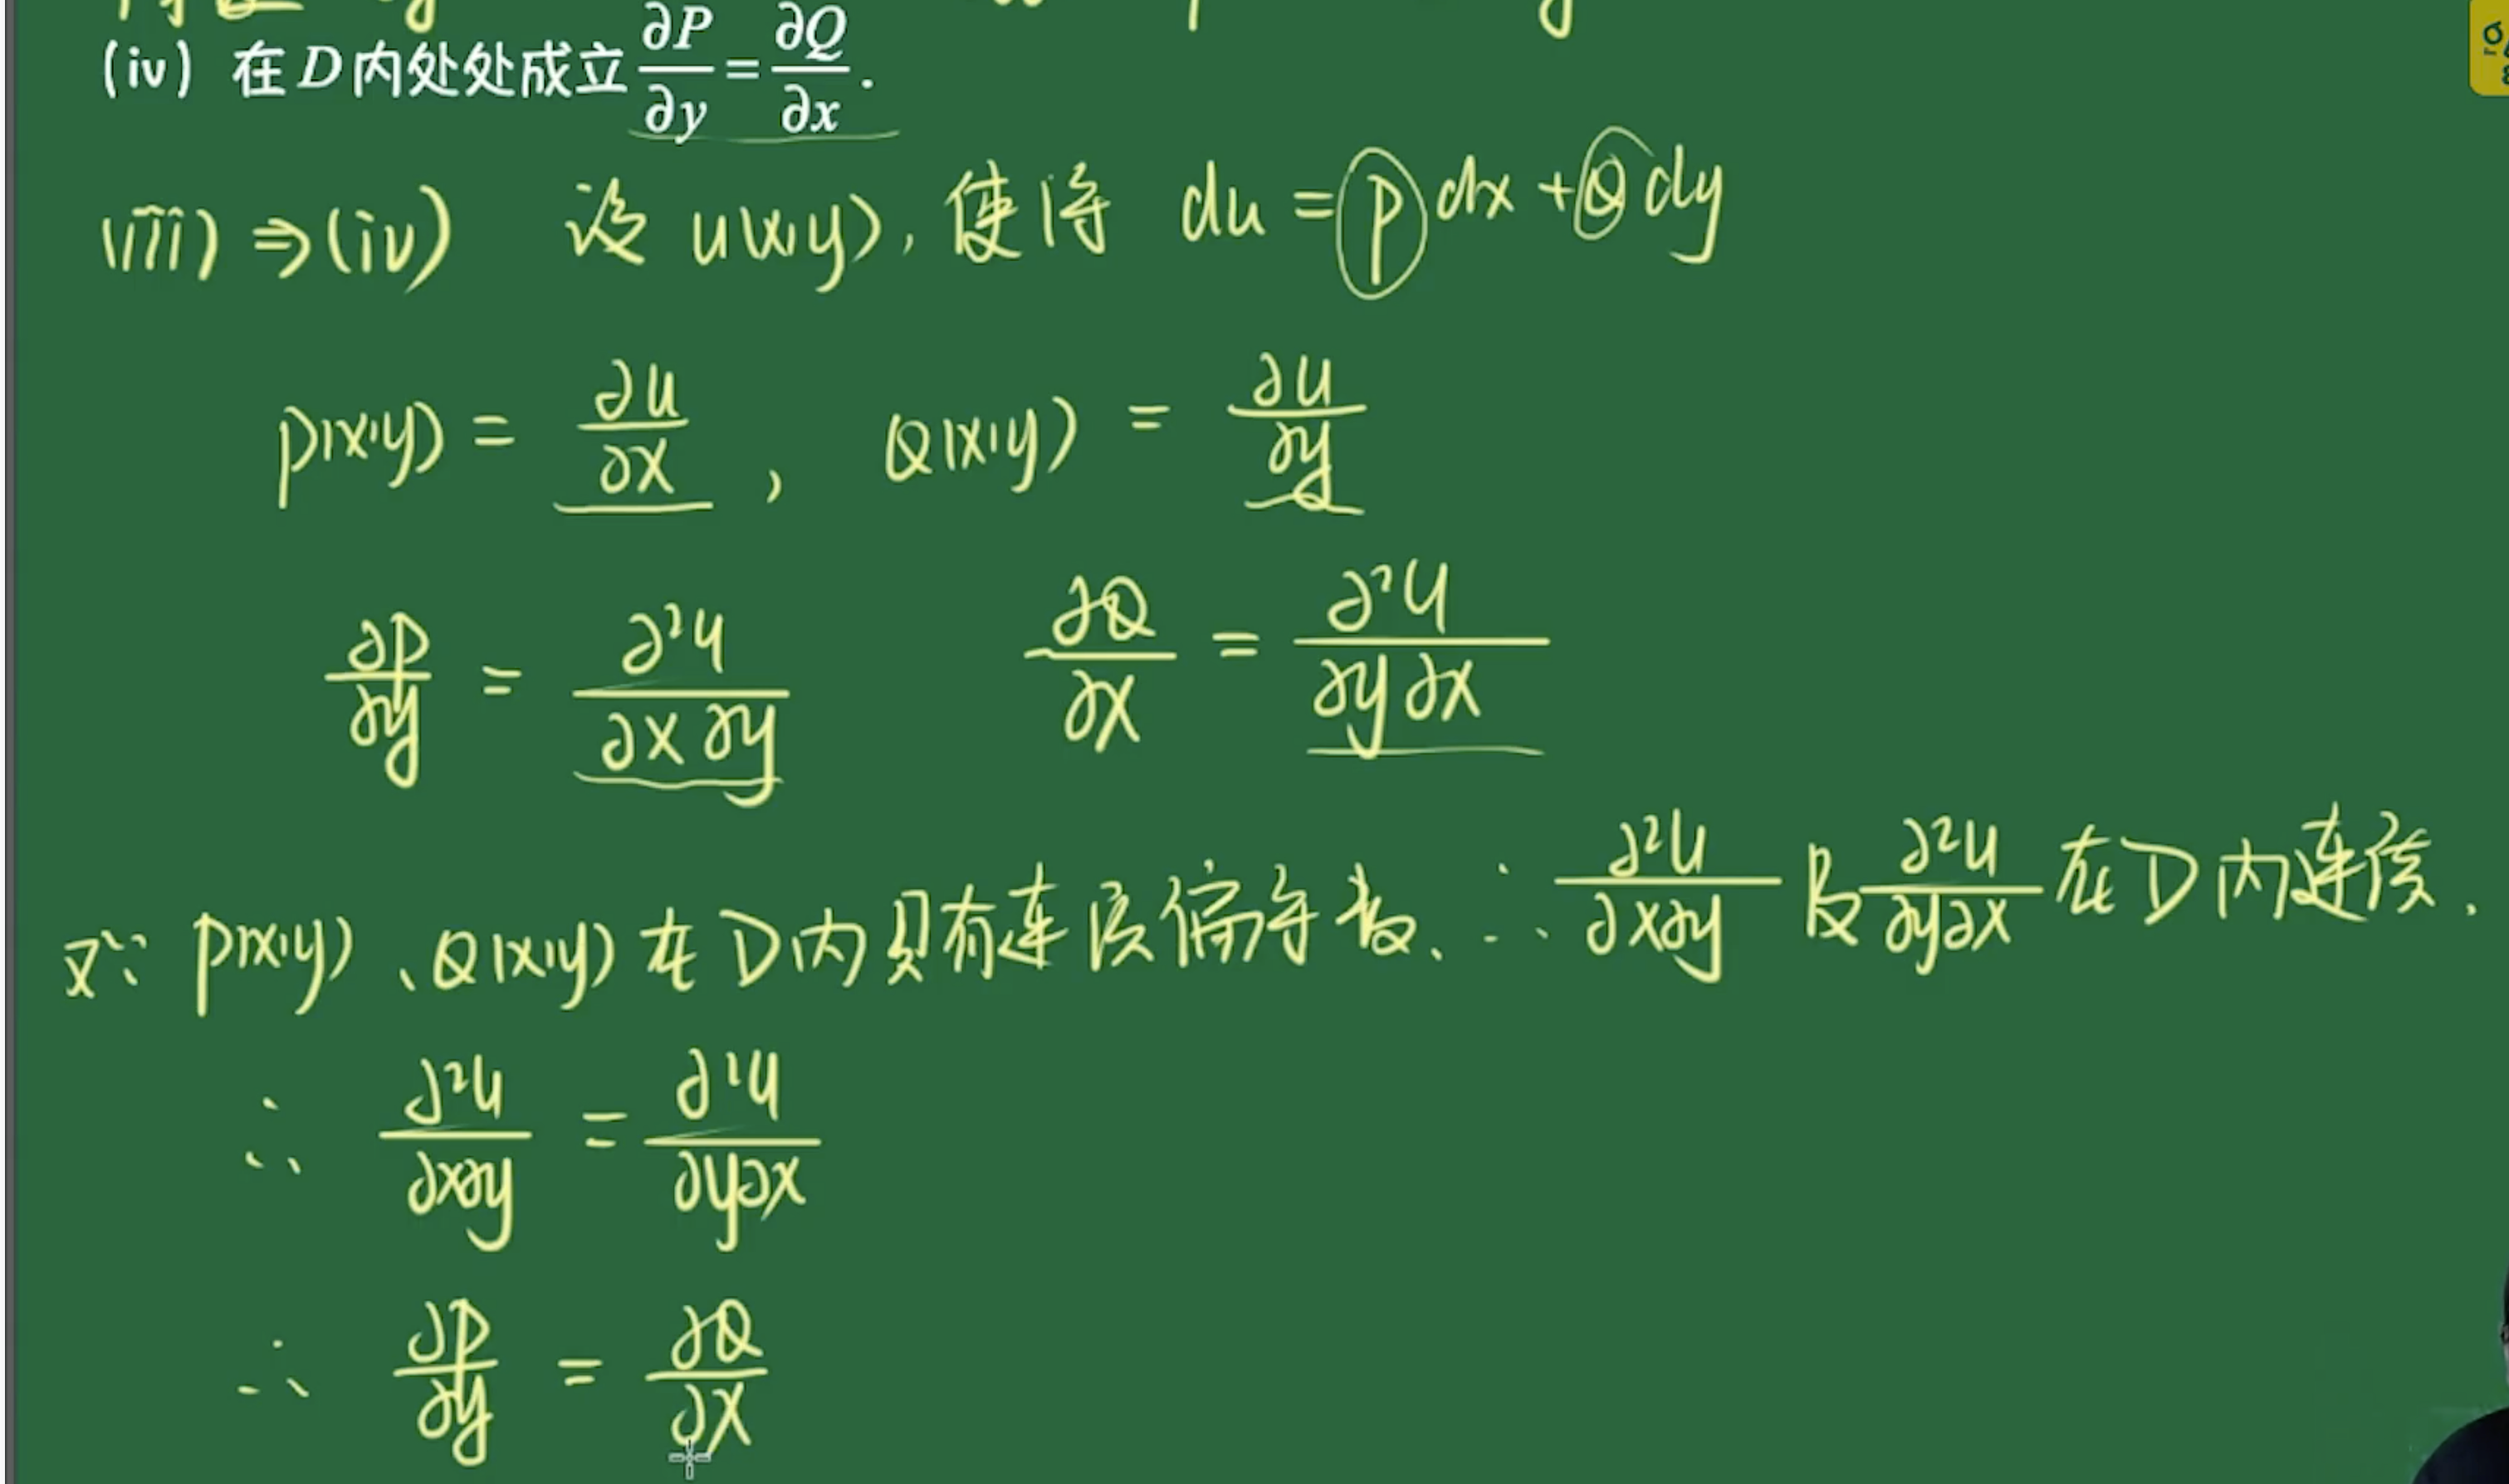 (iv) 在 D 内处处成立 ∂P/∂y = ∂Q/∂x .
(iii) ⇒ (iv) 设 u(x,y), 使得 du = P dx + Q dy
P(x,y) = ∂u/∂x , Q(x,y) = ∂u/∂y
∂P/∂y = ∂²u/∂x∂y ∂Q/∂x = ∂²u/∂y∂x
又∵ P(x,y)、Q(x,y) 在 D 内具有连续偏导数. ∴ ∂²u/∂x∂y 及 ∂²u/∂y∂x 在 D 内连续.
∴ ∂²u/∂x∂y = ∂²u/∂y∂x
∴ ∂P/∂y = ∂Q/∂x